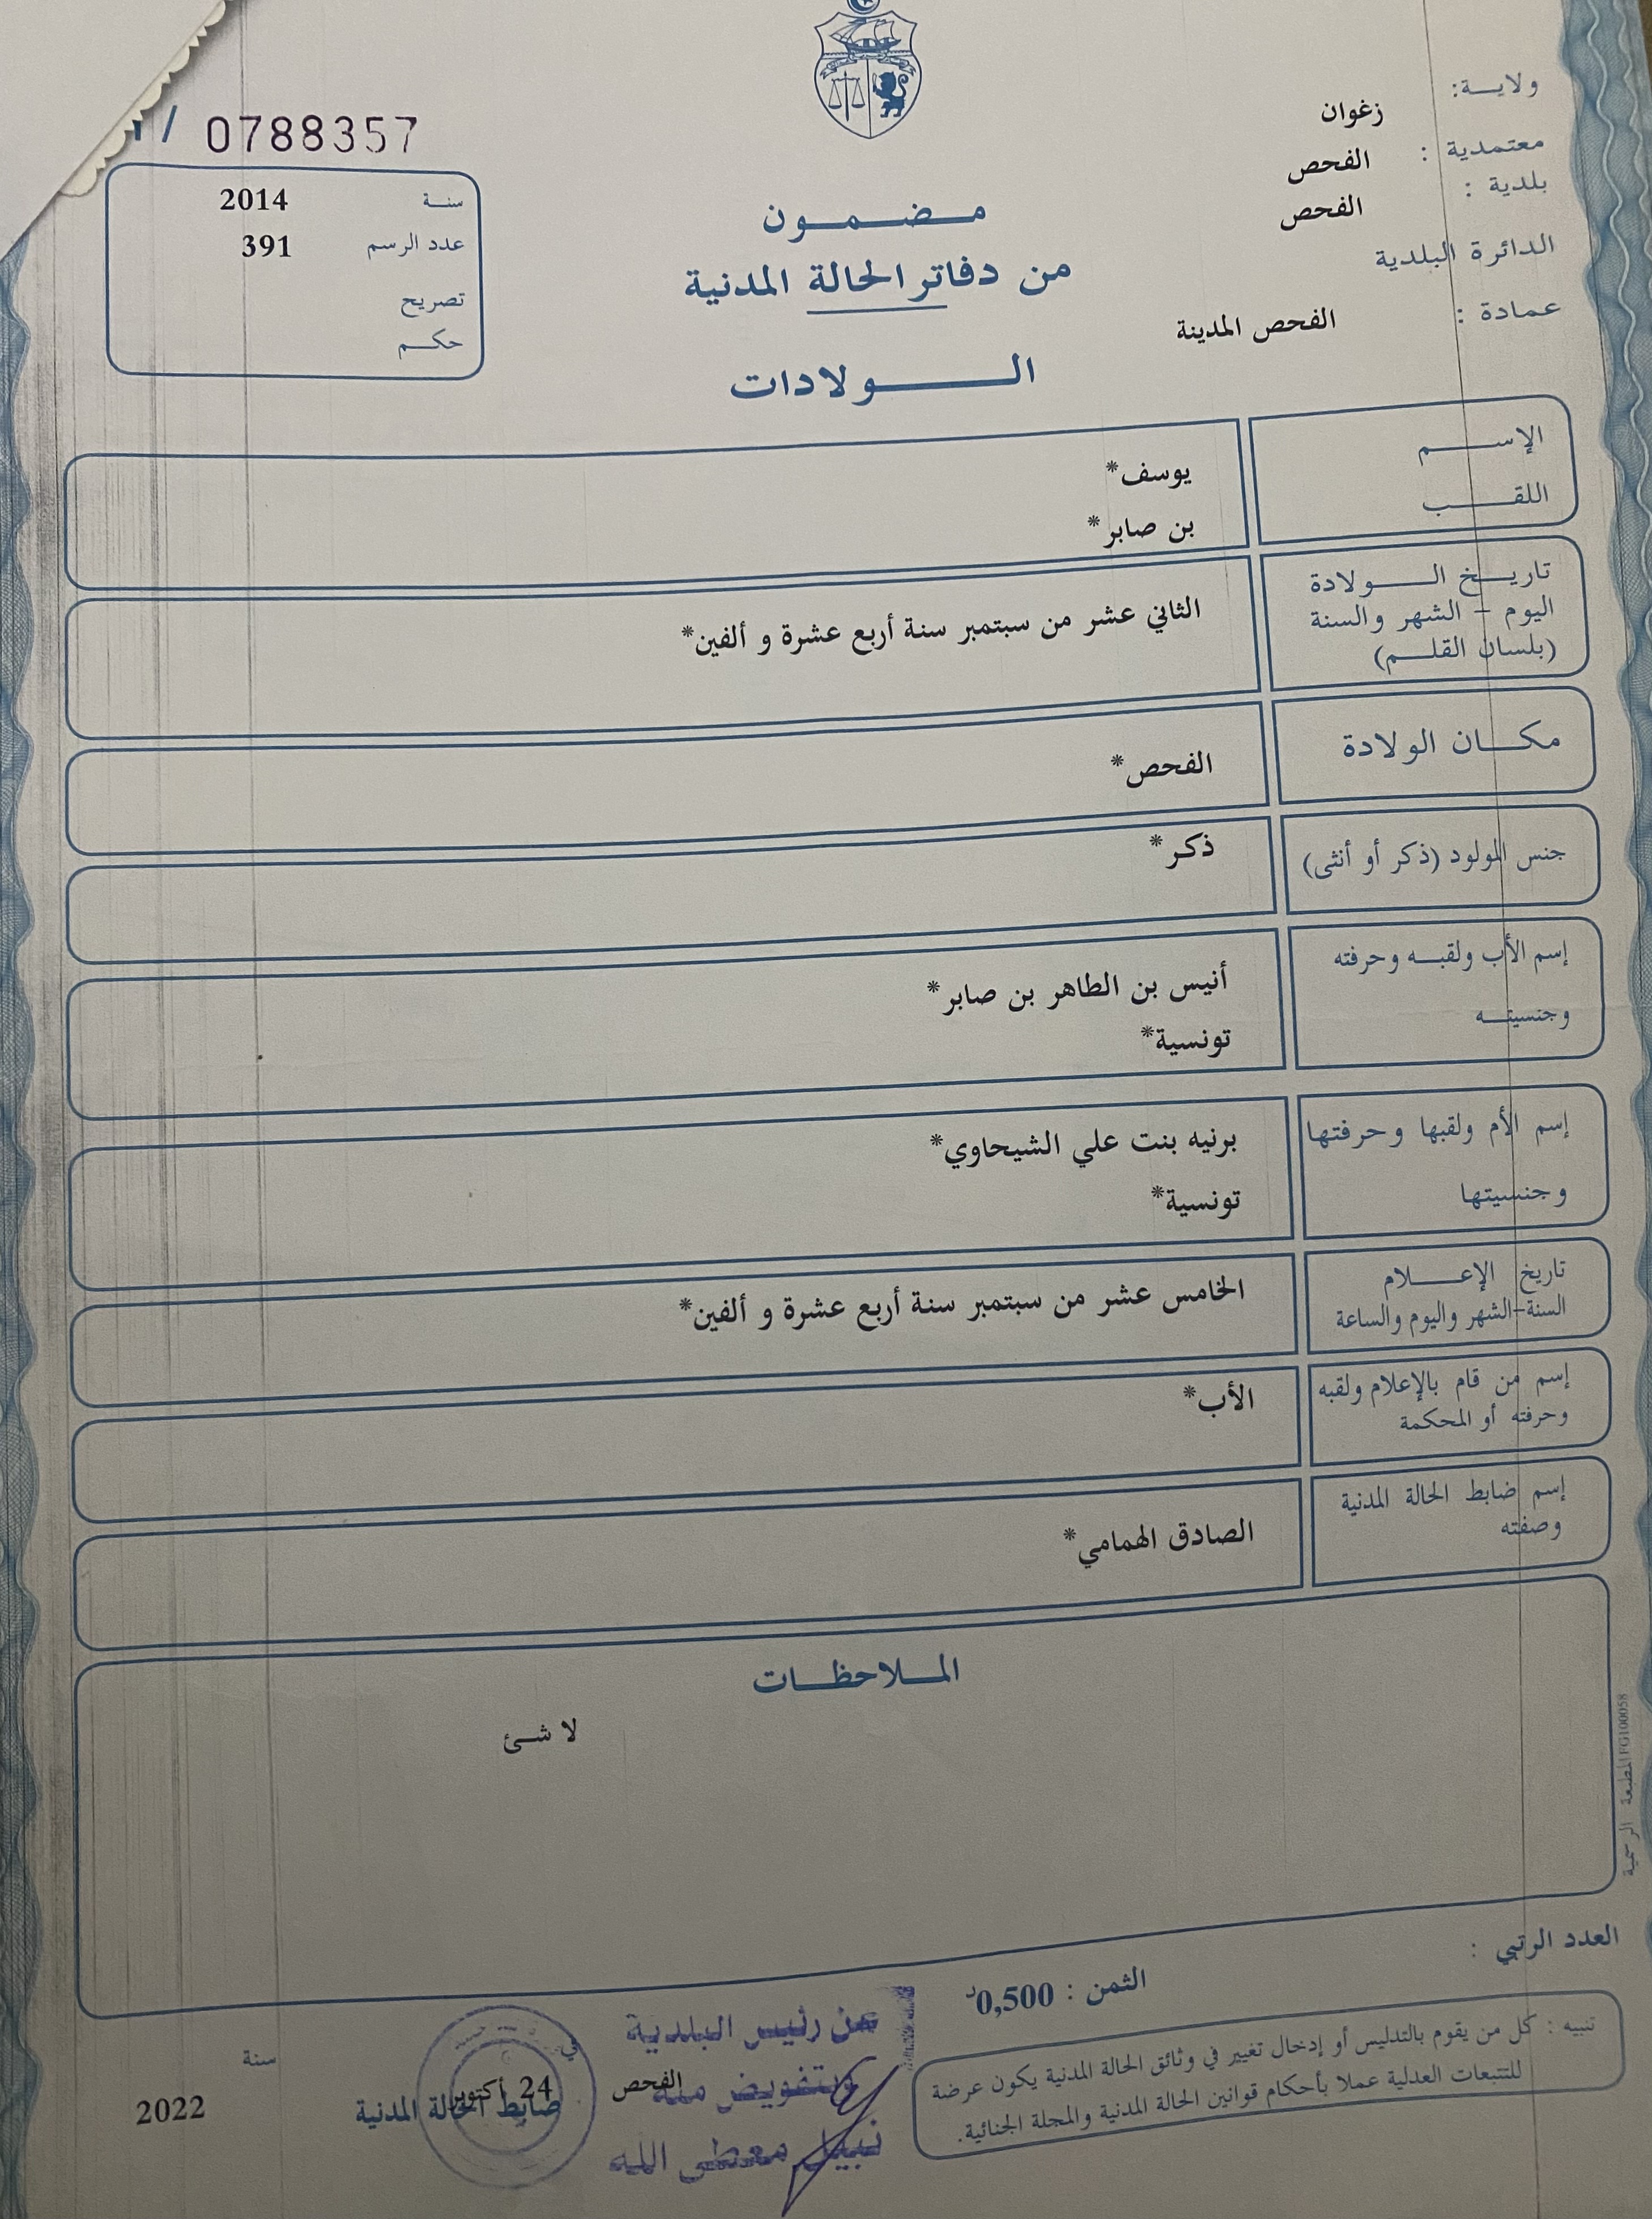 ولاية: زغوان
معتمدية : الفحص
بلدية : الفحص
الدائرة البلدية
عمادة : الفحص المدينة
/ 0788357
سنة 2014
عدد الرسم 391
تصريح
حكم
مضمون
من دفاتر الحالة المدنية
الولادات
الإسم يوسف*
اللقب بن صابر*
تاريخ الولادة
اليوم - الشهر والسنة
(بلسان القلم)
الثاني عشر من سبتمبر سنة أربع عشرة و ألفين*
مكان الولادة الفحص*
جنس المولود (ذكر أو أنثى) ذكر*
إسم الأب ولقبه وحرفته أنيس بن الطاهر بن صابر*
وجنسيته تونسية*
إسم الأم ولقبها وحرفتها برنيه بنت علي الشيحاوي*
وجنسيتها تونسية*
تاريخ الإعلام
السنة-الشهر واليوم والساعة
الخامس عشر من سبتمبر سنة أربع عشرة و ألفين*
إسم من قام بالإعلام ولقبه
وحرفته أو المحكمة
الأب*
إسم ضابط الحالة المدنية
وصفته
الصادق الهمامي*
الملاحظات
لا شئ
المطبعة الرسمية FG100058
العدد الرتبي :
الثمن : 0,500د
تنبيه : كل من يقوم بالتدليس أو إدخال تغيير في وثائق الحالة المدنية يكون عرضة
للتتبعات العدلية عملا بأحكام قوانين الحالة المدنية والمجلة الجنائية.
عن رئيس البلدية
وبتفويض منه
نبيل معطى الله
الفحص في 24 أكتوبر سنة 2022
ضابط الحالة المدنية